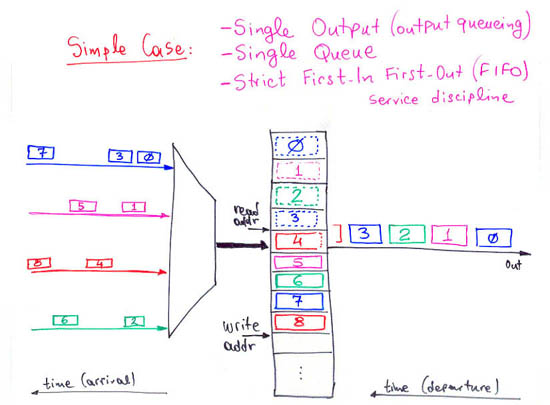 Simple Case:
-Single Output (output queueing)
-Single Queue
-Strict First-In First-Out (FIFO)
service discipline
7 3 0
5 1
8 4
6 2
time (arrival)
0
1
2
3
read addr
4
5
6
7
8
write addr
...
3 2 1 0
Out
time (departure)